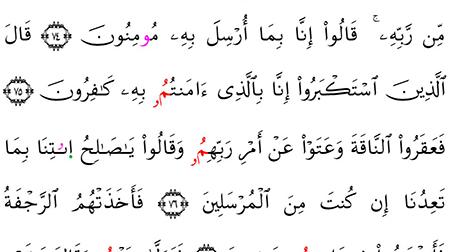 مِّن رَّبِّهِۦۚ قَالُوٓاْ إِنَّا بِمَآ أُرۡسِلَ بِهِۦ مُومِنُونَ ٧٤ قَالَ
ٱلَّذِينَ ٱسۡتَكۡبَرُوٓاْ إِنَّا بِٱلَّذِيٓ ءَامَنتُمُۥ بِهِۦ كَٰفِرُونَ ٧٥
فَعَقَرُواْ ٱلنَّاقَةَ وَعَتَوۡاْ عَنۡ أَمۡرِ رَبِّهِمُۥ وَقَالُواْ يَٰصَٰلِحُ ٱئۡتِنَا بِمَا
تَعِدُنَآ إِن كُنتَ مِنَ ٱلۡمُرۡسَلِينَ ٧٦ فَأَخَذَتۡهُمُ ٱلرَّجۡفَةُ